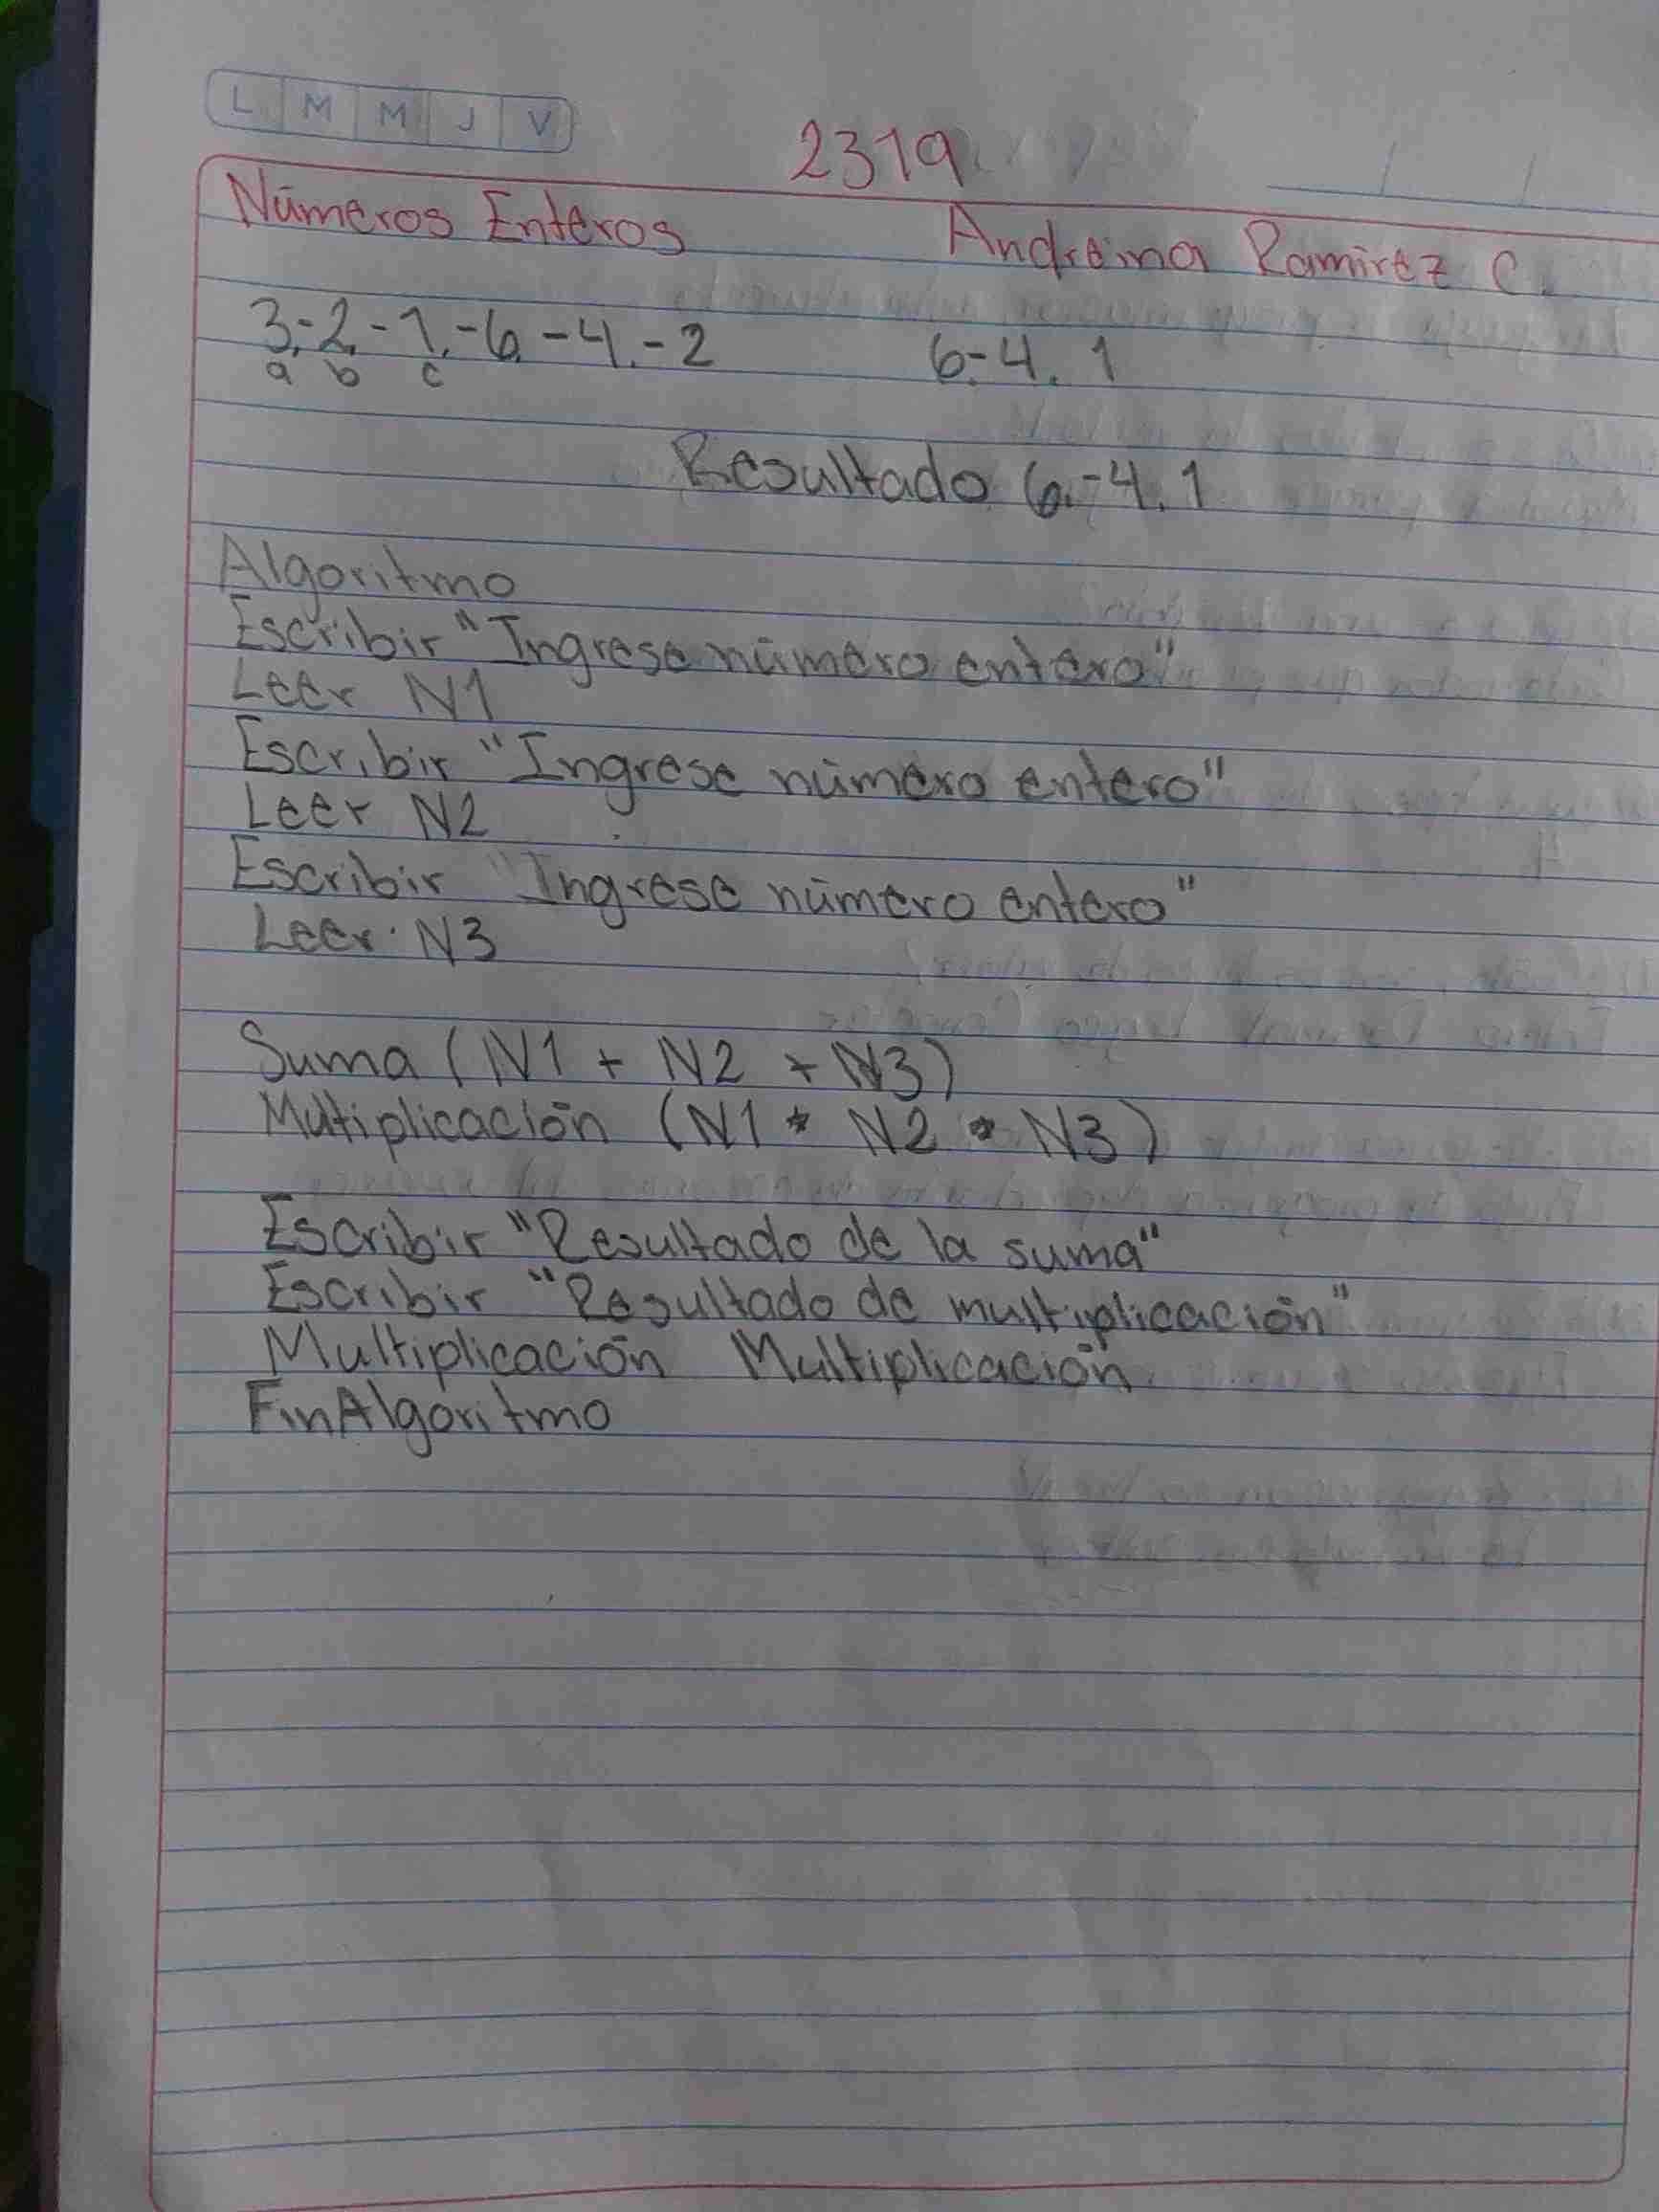 L M M J V
2319
Números Enteros Andreina Ramirez C.
3,-2,-1,-6,-4,-2 6,-4, 1
a b c
Resultado 6,-4,1
Algoritmo
Escribir "Ingrese número entero"
Leer N1
Escribir "Ingrese número entero"
Leer N2
Escribir "Ingrese número entero"
Leer N3
Suma (N1 + N2 + N3)
Multiplicación (N1 * N2 * N3)
Escribir "Resultado de la suma"
Escribir "Resultado de multiplicación"
Multiplicación Multiplicación
FinAlgoritmo